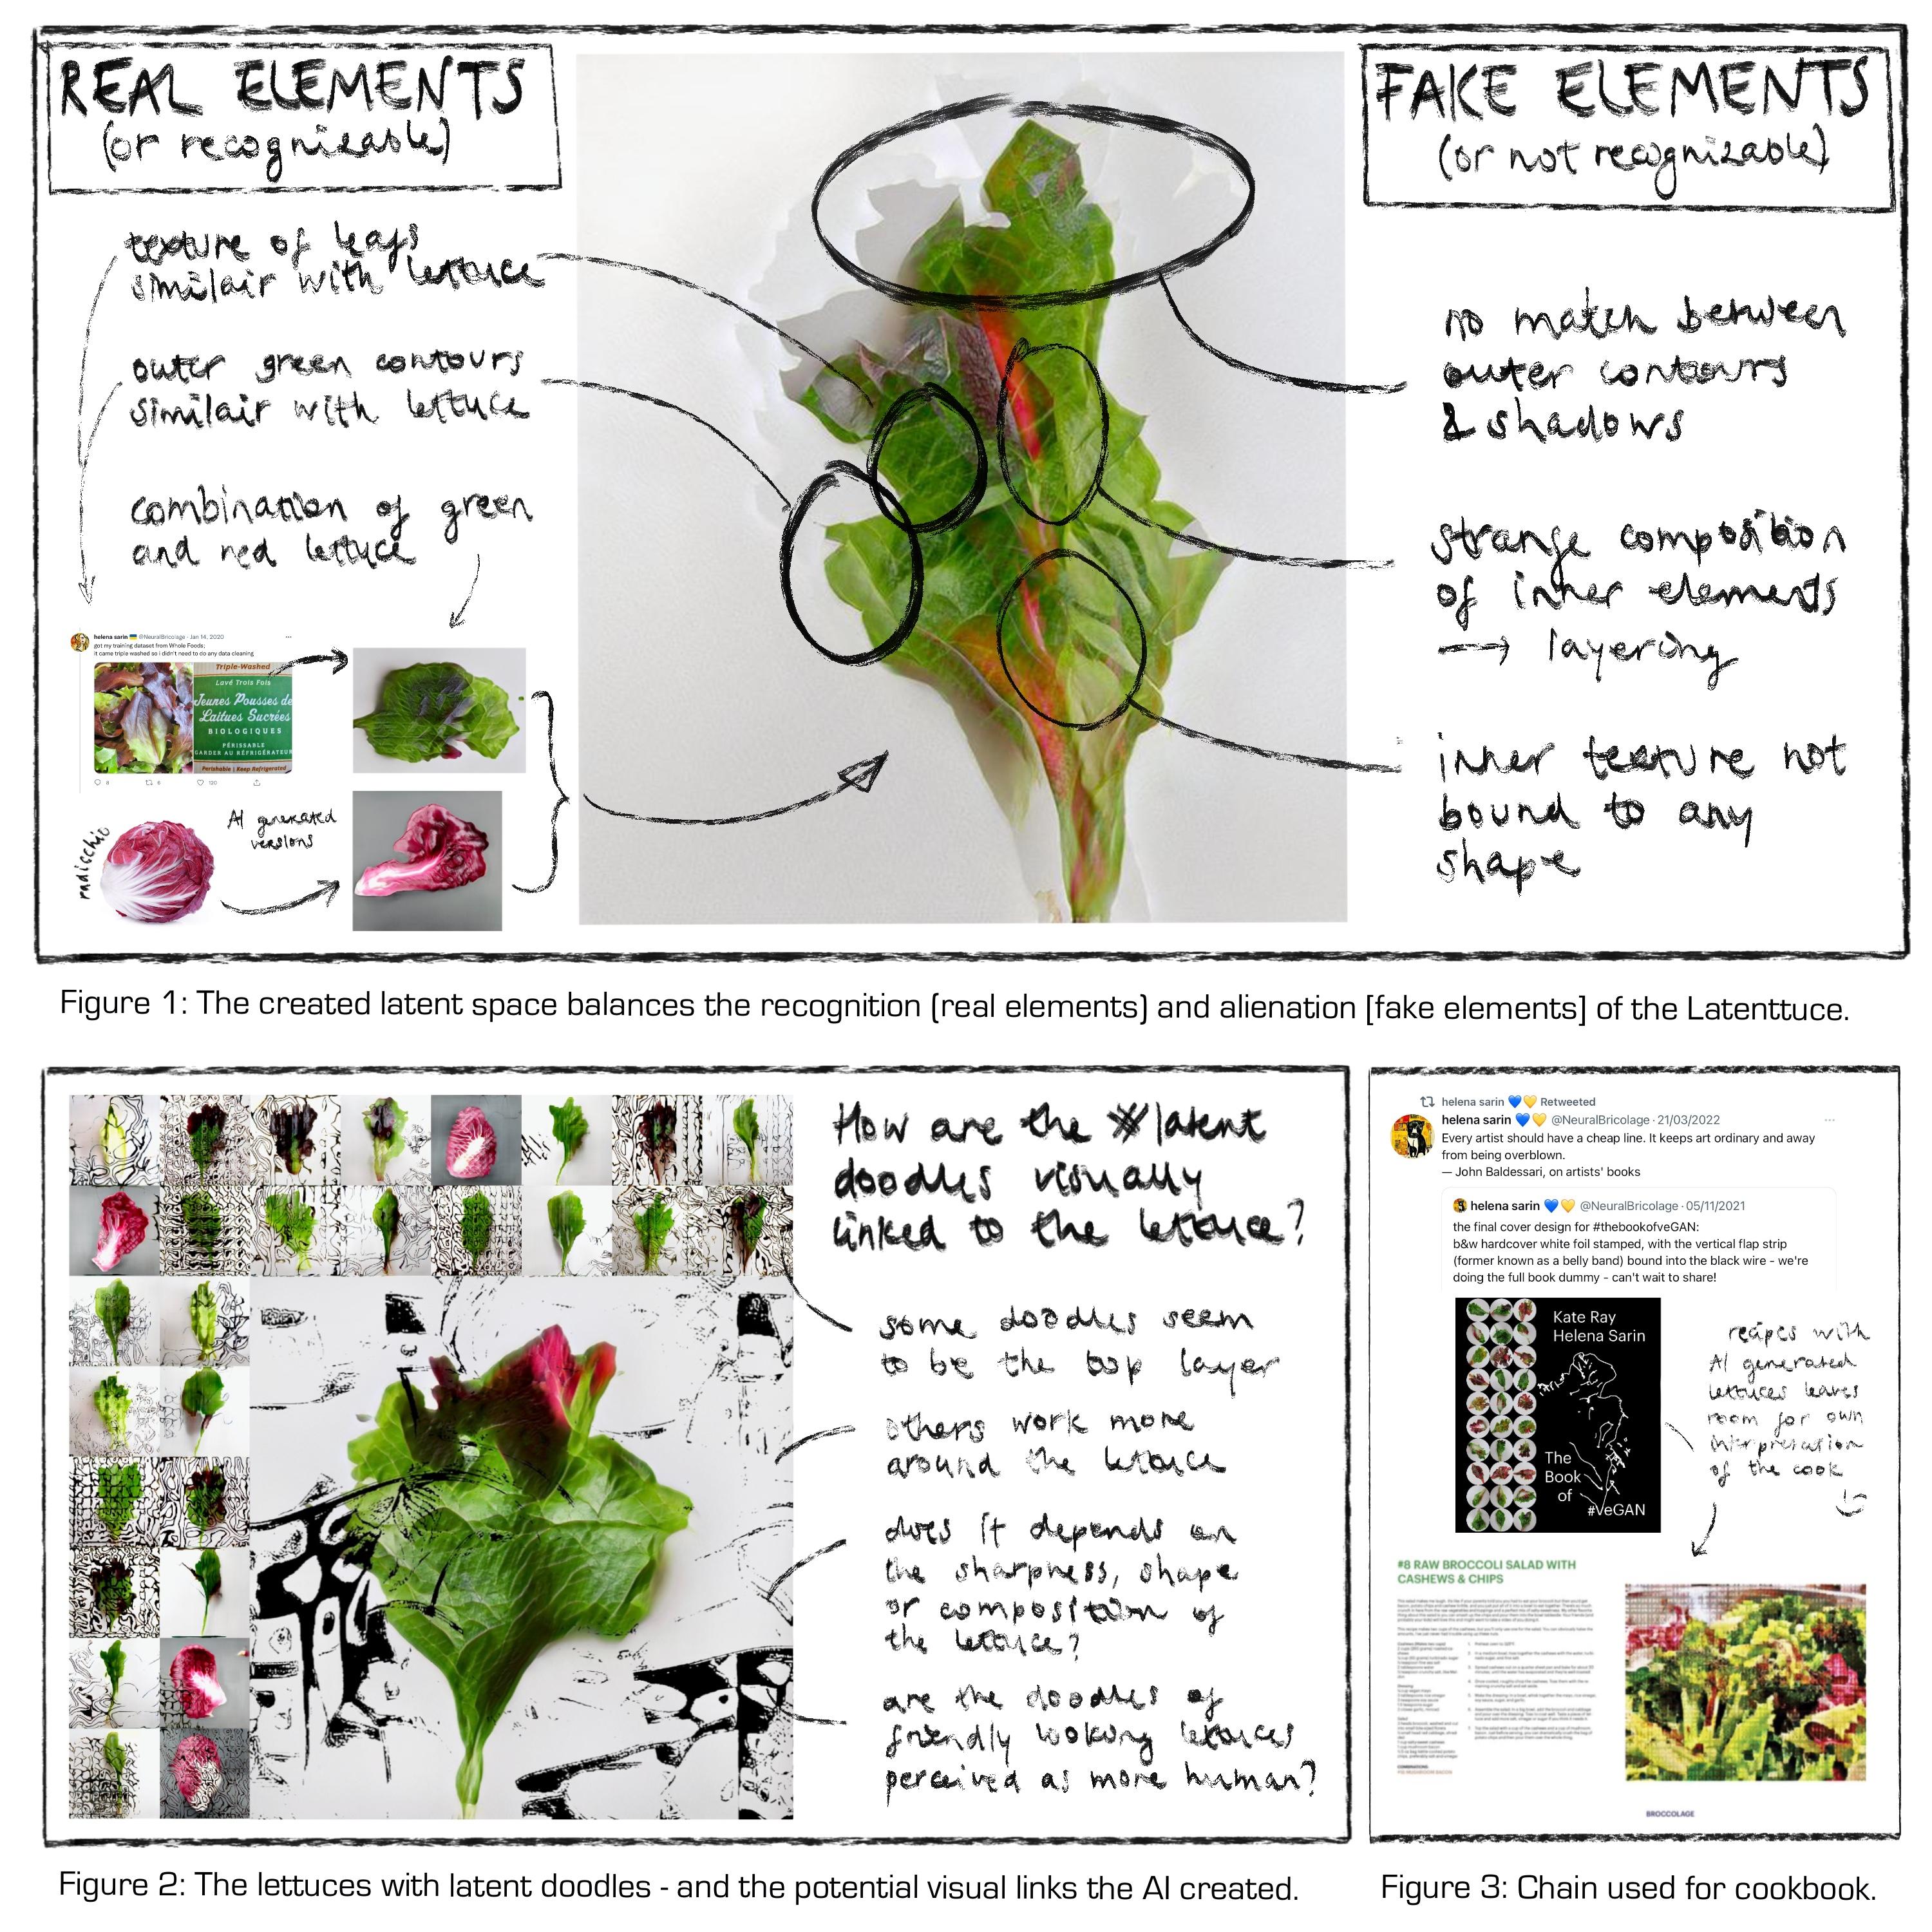 REAL ELEMENTS
(or recognizeable)
texture of leafs
similair with lettuce
outer green contours
similair with lettuce
combination of green
and red lettuce
helena sarin 🇺🇦 @NeuralBricolage · Jan 14, 2020
got my training dataset from Whole Foods;
it came triple washed so i didn't need to do any data cleaning
Triple-Washed
Lavé Trois Fois
Jeunes Pousses de
Laitues Sucrées
BIOLOGIQUES
PÉRISSABLE
GARDER AU RÉFRIGÉRATEUR
Perishable | Keep Refrigerated
120
radicchio
AI generated
versions
FAKE ELEMENTS
(or not recognizable)
no match between
outer contours
& shadows
strange composition
of inner elements
→ layering
inner texture not
bound to any
shape
Figure 1: The created latent space balances the recognition (real elements) and alienation [fake elements] of the Latenttuce.
How are the #latent
doodles visually
linked to the lettuce?
some doodles seem
to be the top layer
others work more
around the lettuce
does it depends on
the sharpness, shape
or composition of
the lettuce?
are the doodles of
friendly looking lettuces
perceived as more human?
Figure 2: The lettuces with latent doodles - and the potential visual links the AI created.
helena sarin 💙💛 Retweeted
helena sarin 💙💛 @NeuralBricolage · 21/03/2022
Every artist should have a cheap line. It keeps art ordinary and away
from being overblown.
— John Baldessari, on artists' books
helena sarin 💙💛 @NeuralBricolage · 05/11/2021
the final cover design for #thebookofveGAN:
b&w hardcover white foil stamped, with the vertical flap strip
(former known as a belly band) bound into the black wire - we're
doing the full book dummy - can't wait to share!
Kate Ray
Helena Sarin
The
Book
of
#VeGAN
recipes with
AI generated
lettuces leaves
room for own
interpretation
of the cook
#8 RAW BROCCOLI SALAD WITH
CASHEWS & CHIPS
BROCCOLAGE
Figure 3: Chain used for cookbook.